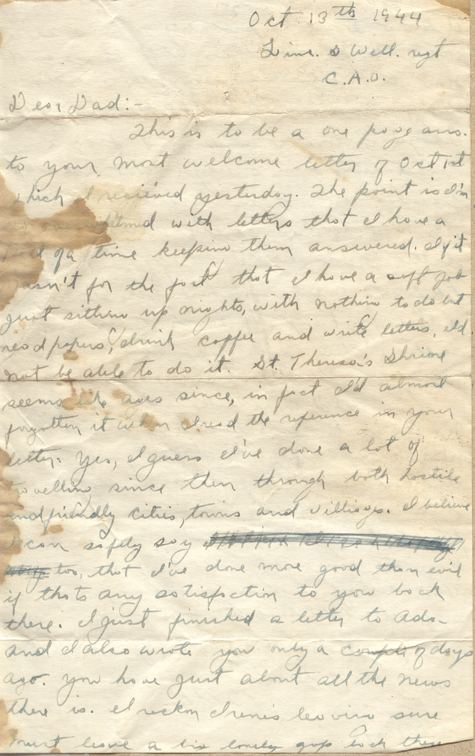 Oct 13th 1944
Linc. & Well. regt
C.A.O.
Dear Dad:-
This is to be a one page ans.
to your most welcome letter of Oct 1st
which I recieved yesterday. The point is I'm
with letters that I have a
of a time keepin them answered. If it
wasn't for the fact that I have a soft job
just sittin up nights, with nothin to do but
read papers, drink coffee and write letters, I'd
not be able to do it. St. Theresa's Shrine
seems like ages since, in fact I'd almost
forgotten it when I read the reference in your
letter. Yes, I guess I've done a lot of
travellin since then through both hostile
and friendly cities, towns and villiages. I believe
I can safely say
too, that I've done more good than evil
if thats any satisfaction to you back
there. I just finished a letter to Ada
and I also wrote you only a couple of days
ago. You have just about all the news
there is. I reckon Irene's leavins sure
must leave a big lonely gap back there